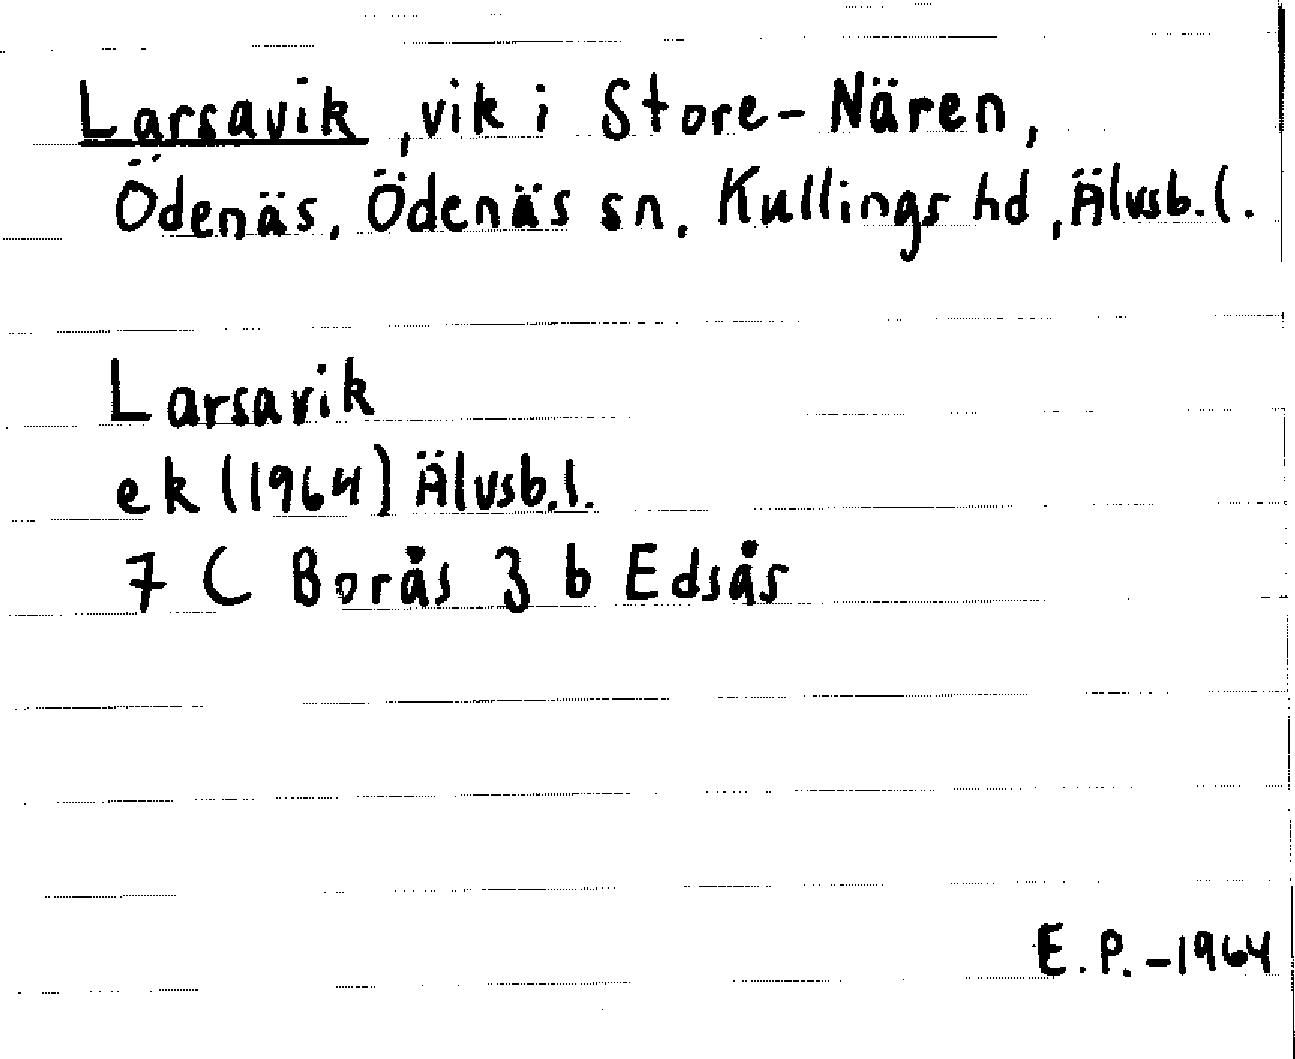 Larsavik, vik i Store-Nären,
Ödenäs, Ödenäs sn, Kullings hd, Älvsb. l.
Larsavik
ek (1964) Älvsb. l.
7 C Borås 3 b Edsås
E. P. -1964